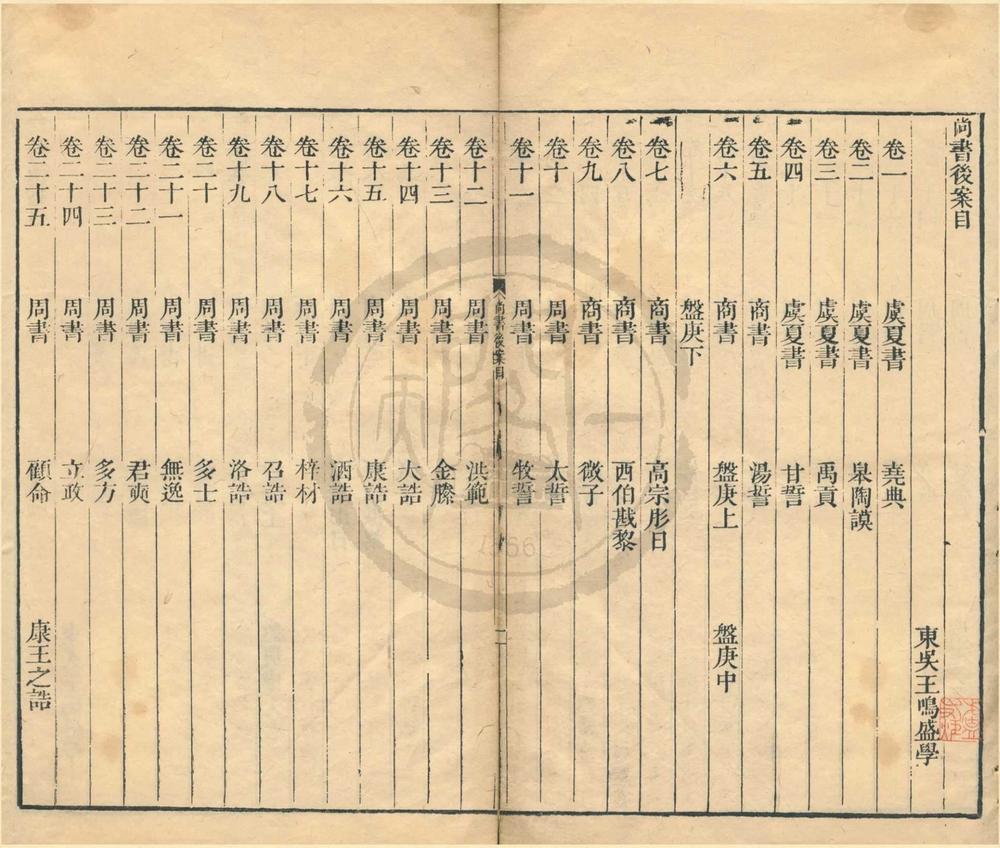 尚書後案目
東吳王鳴盛學
卷一 虞夏書 堯典
卷二 虞夏書 皋陶謨
卷三 虞夏書 禹貢
卷四 虞夏書 甘誓
卷五 商書 湯誓
卷六 商書 盤庚上 盤庚中
盤庚下
卷七 商書 高宗肜日
卷八 商書 西伯戡黎
卷九 商書 微子
卷十 周書 太誓
卷十一 周書 牧誓
尚書後案目 二
卷十二 周書 洪範
卷十三 周書 金縢
卷十四 周書 大誥
卷十五 周書 康誥
卷十六 周書 酒誥
卷十七 周書 梓材
卷十八 周書 召誥
卷十九 周書 洛誥
卷二十 周書 多士
卷二十一 周書 無逸
卷二十二 周書 君奭
卷二十三 周書 多方
卷二十四 周書 立政
卷二十五 周書 顧命 康王之誥